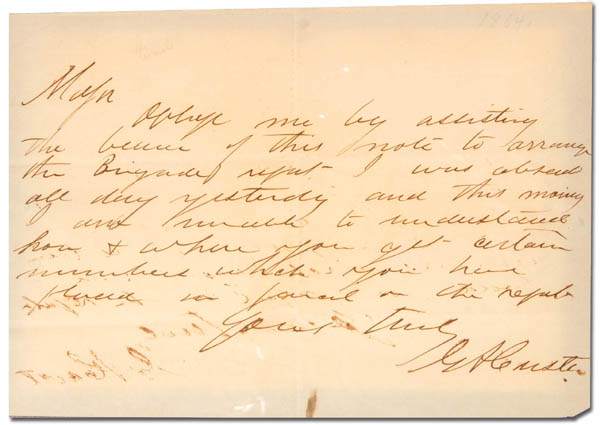 1864.
Major
Oblige me by assisting
the bearer of this note to arrange
the Brigade report I was absent
all day yesterday and this morning
I am unable to understand
how & where you get certain
numbers which you have
placed in pencil on the report
Yours Truly
G A Custer